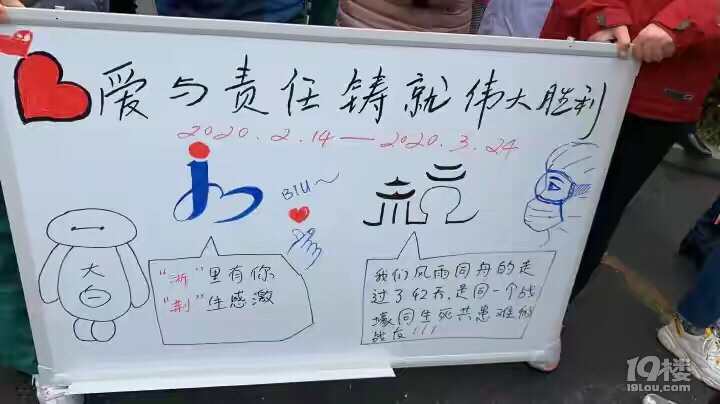 爱与责任铸就伟大胜利
2020.2.14—2020.3.24
BIU~
大
白
"浙"里有你
"荆"生感激
我们风雨同舟的走
过了42天,是同一个战
壕同生死共患难的
战友!!!
19楼
19lou.com